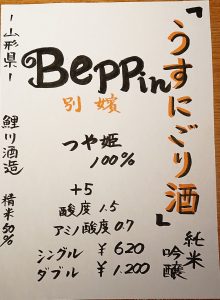 「うすにごり酒」
純米吟醸
Beppin
別嬪
つや姫
100%
+5
酸度 1.5
アミノ酸度 0.7
シングル ¥620
ダブル ¥1.200
ー山形県ー
鯉川酒造
精米50%